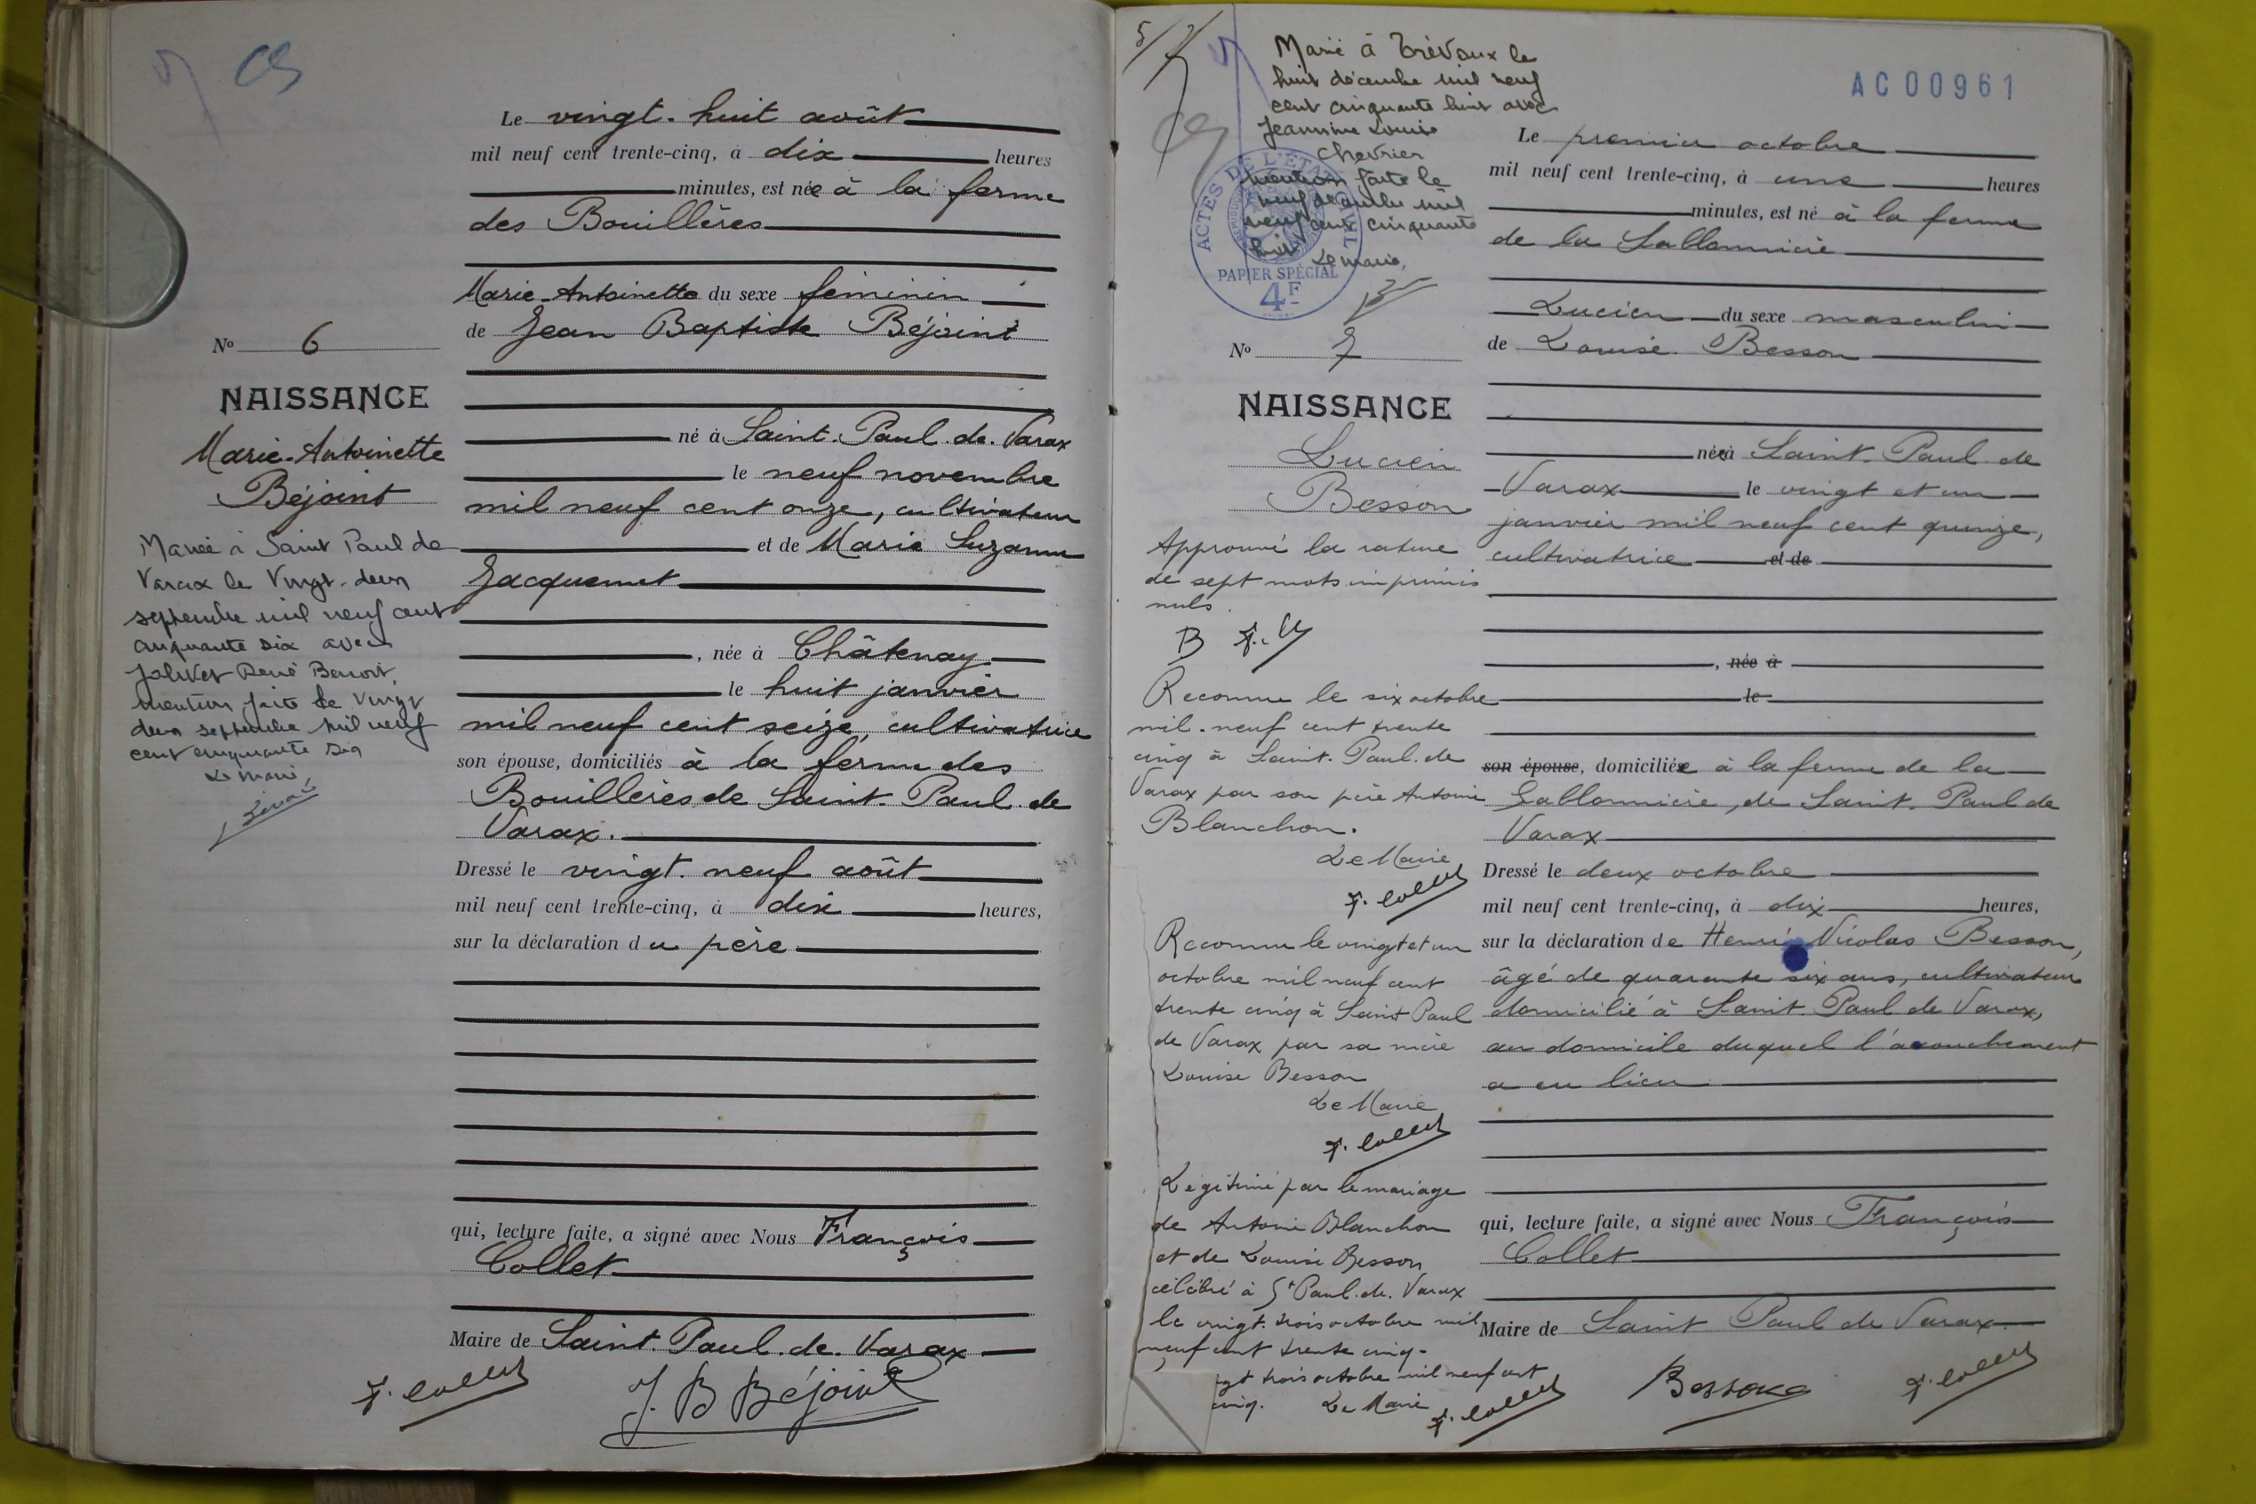 CB
Le vingt-huit août
mil neuf cent trente-cinq, à dix heures
minutes, est née à la ferme
des Bouillères
Marie-Antoinette du sexe féminin
de Jean Baptiste Béjoint
né à Saint-Paul-de-Varax
le neuf novembre
mil neuf cent onze, cultivateur
et de Marie Suzanne
Jacquemet
, née à Châtenay
le huit janvier
mil neuf cent seize, cultivatrice
son épouse, domiciliés à la ferme des
Bouillères, de Saint-Paul-de
Varax.
Dressé le vingt-neuf août
mil neuf cent trente-cinq, à dix heures,
sur la déclaration du père
qui, lecture faite, a signé avec Nous François
Collet
Maire de Saint-Paul-de-Varax
F. Collet
J. B Béjoint
No 6
NAISSANCE
Marie-Antoinette
Béjoint
Mariée à Saint Paul de
Varax le Vingt-deux
septembre mil neuf cent
cinquante six avec
Jolivet René Benoit,
mention faite le Vingt
deux septembre mil neuf
cent cinquante six
Le Maire,
5/7
Marié à Trévoux le
huit décembre mil neuf
cent cinquante huit avec
Jeannine Louise
Chevrier
mention faite le
neuf décembre mil
neuf cent cinquante
huit Le Maire,
ACTES DE L'ETAT CIVIL
PAPIER SPÉCIAL
4F
No 7
NAISSANCE
Lucien
Besson
Approuvé la rature
de sept mots imprimés
nuls.
B F. C
Reconnu le six octobre
mil-neuf cent trente
cinq à Saint-Paul-de
Varax par son père Antoine
Blanchon.
Le Maire
F. Collet
Reconnu le vingt et un
octobre mil neuf cent
trente cinq à Saint Paul
de Varax par sa mère
Louise Besson
Le Maire
F. Collet
Légitimé par le mariage
de Antoine Blanchon
et de Louise Besson
célébré à St Paul-de-Varax
le vingt-trois octobre mil
neuf cent trente cinq-
gt trois octobre mil neuf cent
cinq. Le Maire F. Collet
AC00961
Le premier octobre
mil neuf cent trente-cinq, à une heures
minutes, est né à la ferme
de la Sallonnière
Lucien du sexe masculin
de Louise Besson
née à Saint-Paul-de
Varax le vingt et un
janvier mil neuf cent quinze,
cultivatrice et de
, née à
le
son épouse, domiciliée à la ferme de la
Sallonnière, de Saint-Paul de
Varax
Dressé le deux octobre
mil neuf cent trente-cinq, à dix heures,
sur la déclaration de Henri Nicolas Besson,
âgé de quarante six ans, cultivateur
domicilié à Saint Paul de Varax,
au domicile duquel l'accouchement
a eu lieu
qui, lecture faite, a signé avec Nous François
Collet
Maire de Saint Paul de Varax
Besson F. Collet